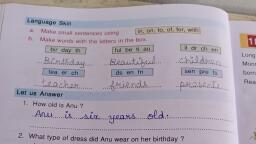 Language Skill
a. Make small sentences using in, on, to, of, for, with
b. Make words with the letters in the box.
bir day th ful be ti au il dr ch en
Birthday Beautiful children
tea er ch ds en fri sen pre ts
teacher friends presents
Let us Answer
1. How old is Anu ?
Anu is six years old.
2. What type of dress did Anu wear on her birthday ?
Long